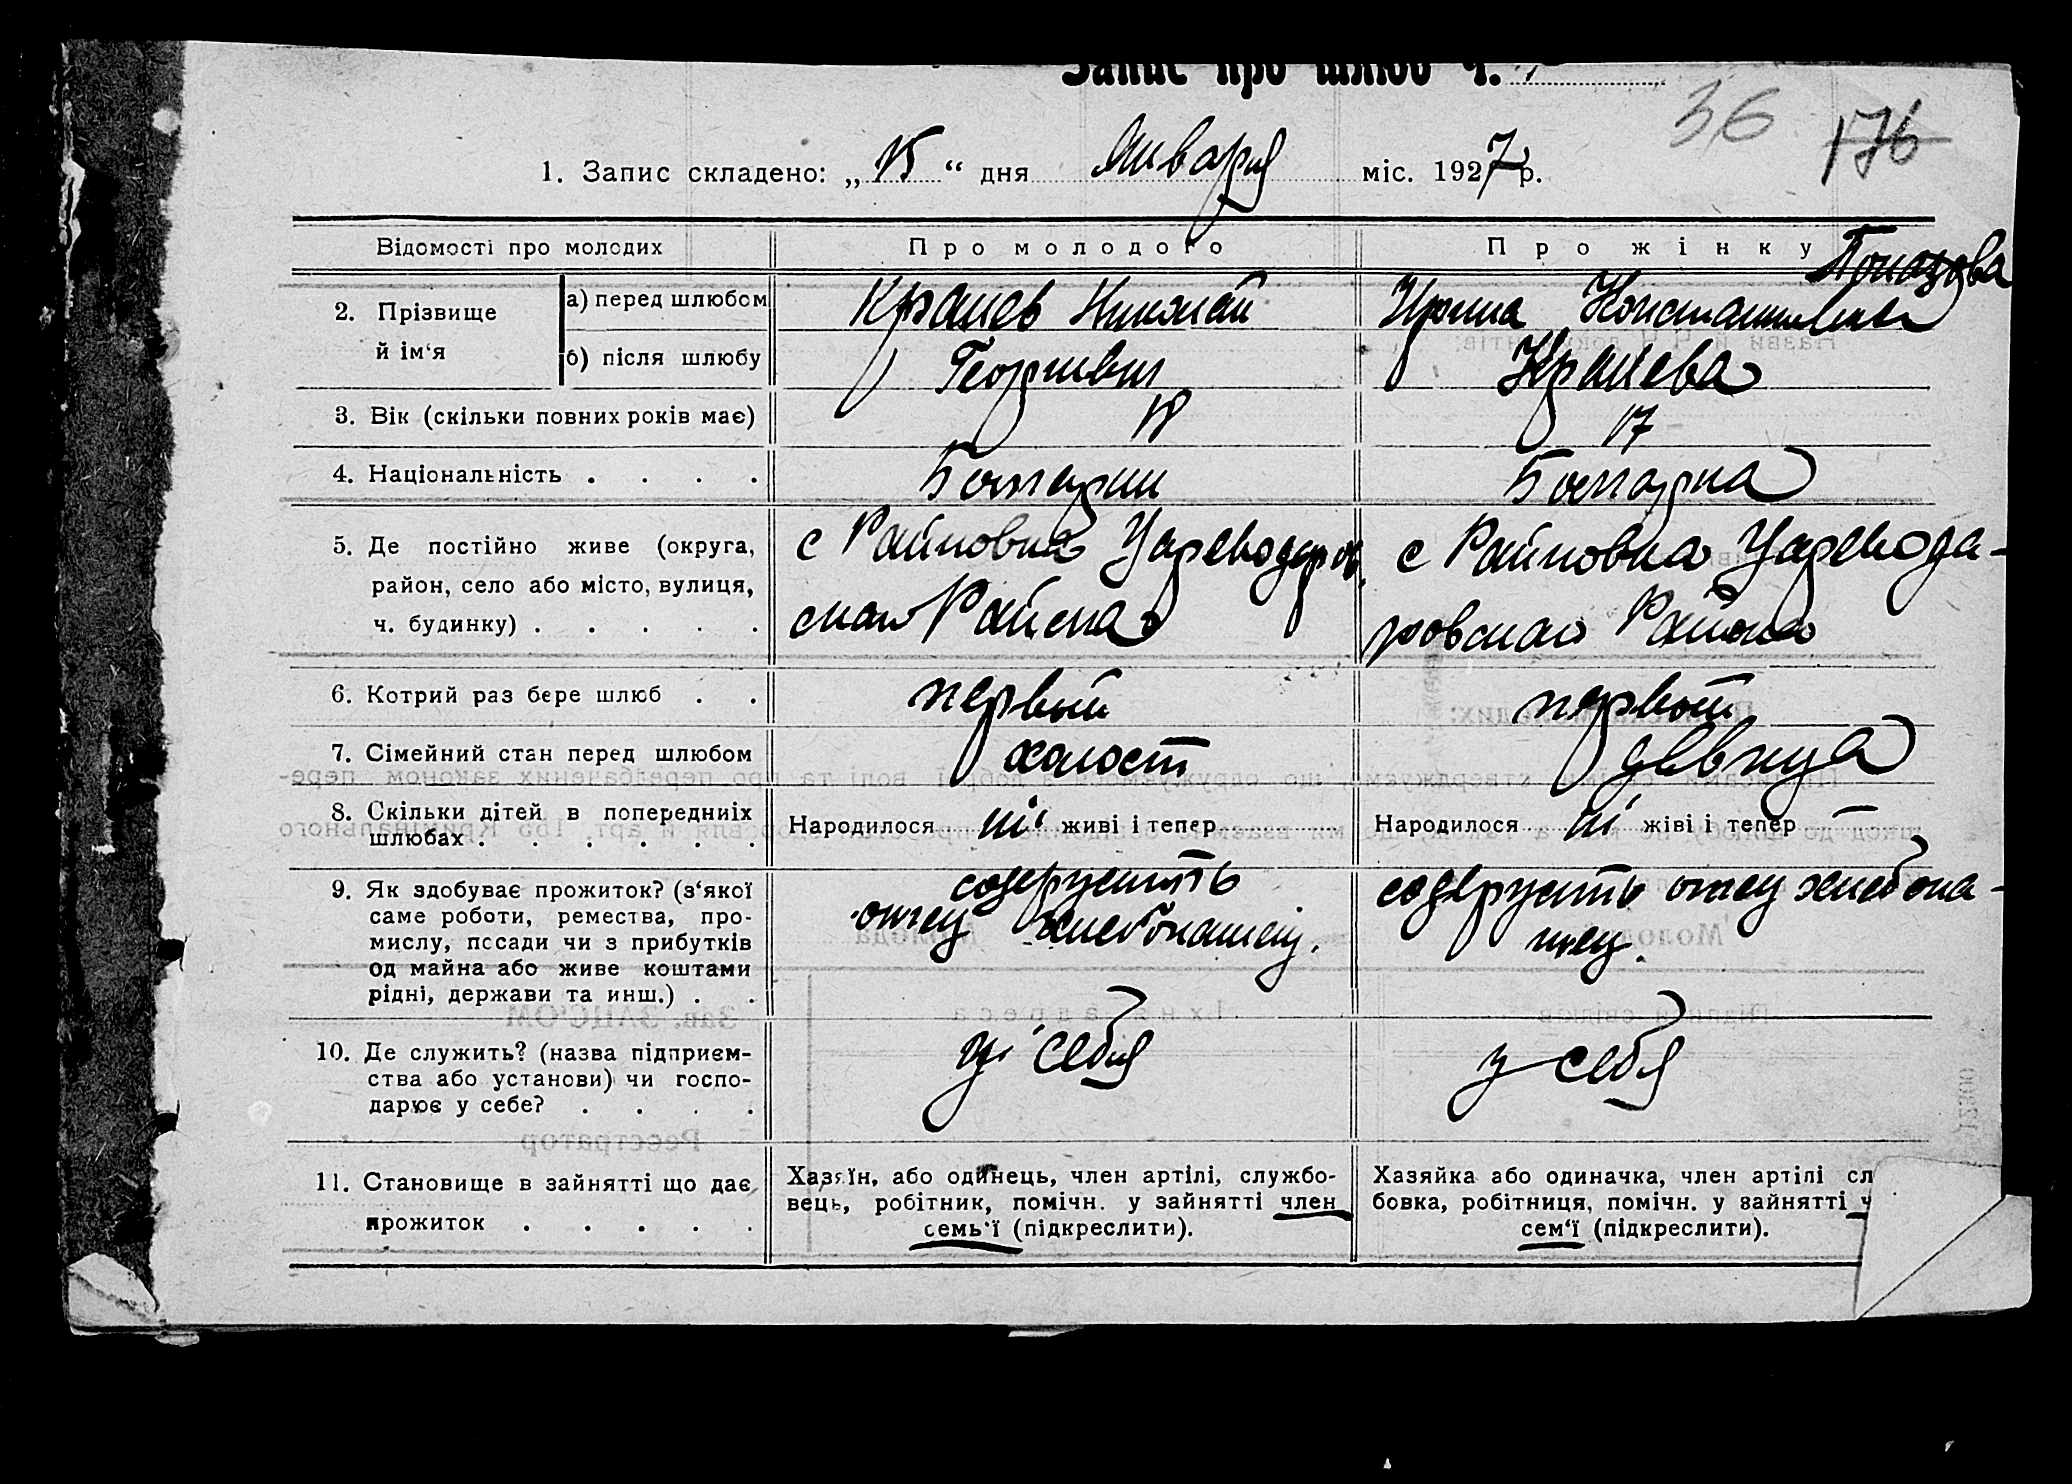 Запис про шлюб ч.
36 176
1. Запис складено: „15“ дня Января міс. 1927 р.
Відомості про молодих
Про молодого
Про жінку
2. Прізвище й ім‘я
а) перед шлюбом
б) після шлюбу
Николай
Георгиевич
Ирина Константиновна
3. Вік (скільки повних років має)
18
17
4. Національність . . . .
Болгарин
Болгарка
5. Де постійно живе (округа,
район, село або місто, вулиця,
ч. будинку) . . . . .
с Райновка Цареводаров
ского Района
с Райновка Царевода-
ровского Района
6. Котрий раз бере шлюб . .
первый
первый
7. Сімейний стан перед шлюбом
холост
девица
8. Скільки дітей в попередніх
шлюбах . . . . . .
Народилося ні живі і тепер
Народилося ні жіві і тепер —
9. Як здобуває прожиток? (з‘якої
саме роботи, ремества, про-
мислу, посади чи з прибутків
од майна або живе коштами
рідні, держави та инш.) . .
отец хлебопашец.
отец хлебопа-
шец.
10. Де служить? (назва підприєм-
ства або установи) чи госпо-
дарює у себе? . . . .
у себя
у себя
11. Становище в зайнятті що дає
прожиток . . . . .
Хазяїн, або одинець, член артілі, службо-
вець, робітник, помічн. у зайнятті член
семь‘ї (підкреслити).
Хазяйка або одиначка, член артілі сл
бовка, робітниця, помічн. у зайнятті ч
сем‘ї (підкреслити).